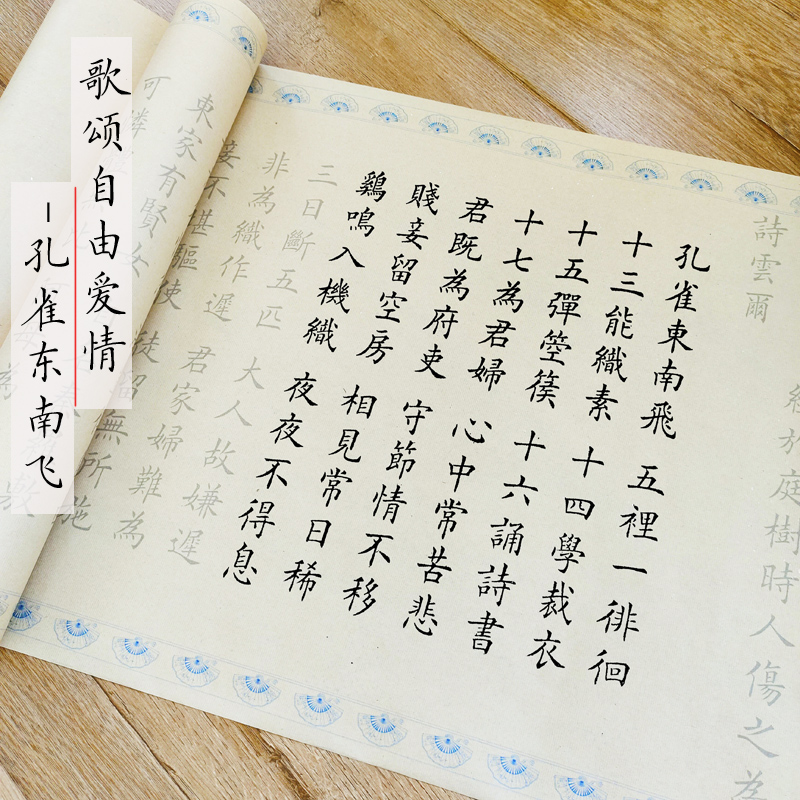 歌颂自由爱情
–孔雀东南飞
於庭樹時人傷之為
詩雲爾
孔雀東南飛 五裡一徘徊
十三能織素 十四學裁衣
十五彈箜篌 十六誦詩書
十七為君婦 心中常苦悲
君既為府吏 守節情不移
賤妾留空房 相見常日稀
鷄鳴入機織 夜夜不得息
三日斷五匹 大人故嫌遲
非為織作遲 君家婦難為
妾不堪驅使 徒留無所施
東家有賢女
可憐